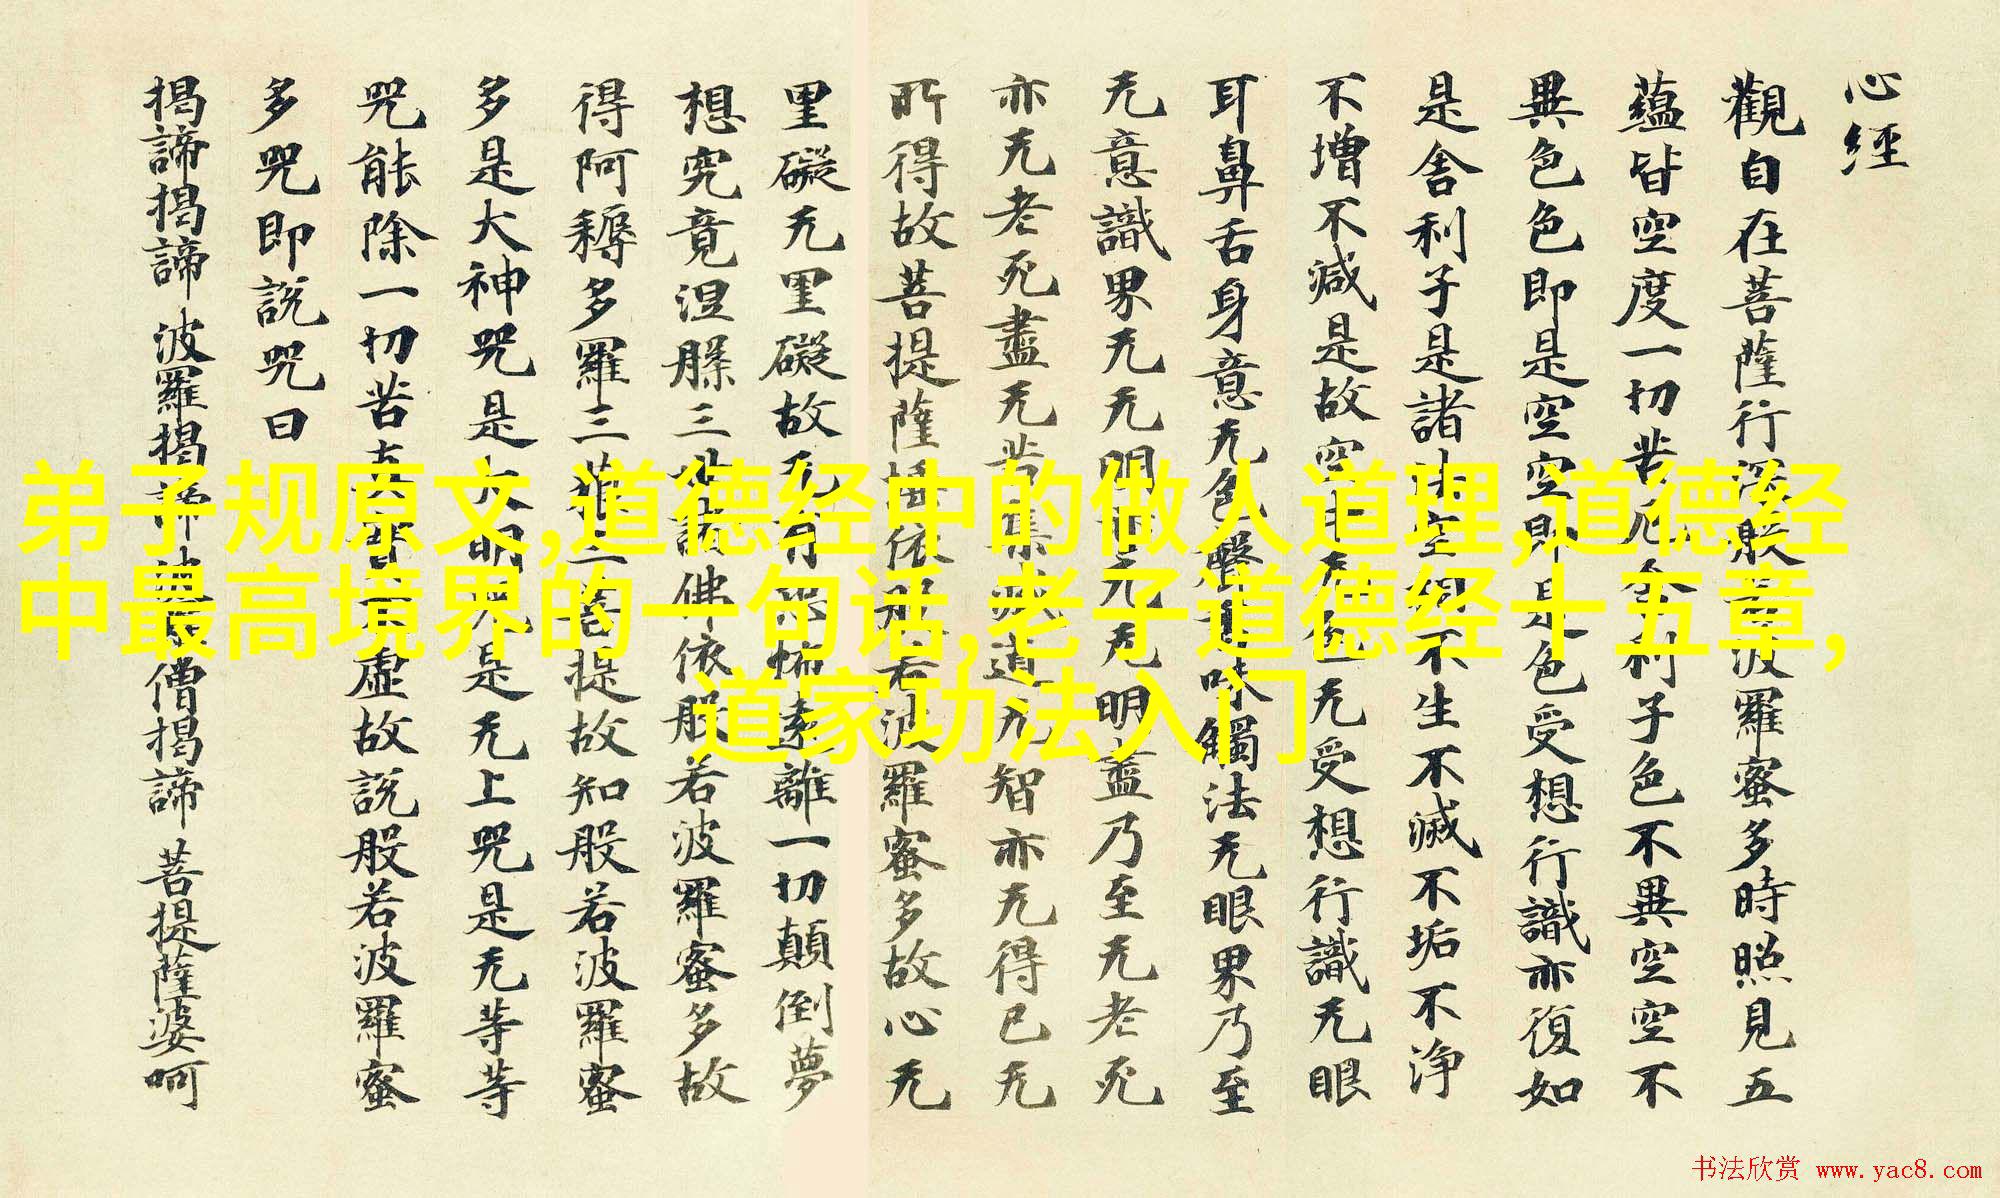 心經
觀自在菩薩行深般若波羅蜜多時照見五
蘊皆空度一切苦厄舍利子色不異空空不
異色色即是空空即是色受想行識亦復如
是舍利子是諸法空相不生不滅不垢不净
不增不減是故空中无色无受想行識无眼
耳鼻舌身意无色聲香味觸法无眼界乃至
无意識界无无明亦无无明盡乃至无老死
亦无老死盡无苦集滅道无智亦无得已无
所得故菩提薩埵依般若波羅蜜多故心无
罣礙无罣礙故无有恐怖遠離一切顛倒夢
想究竟涅槃三世諸佛依般若波羅蜜多故
得阿耨多羅三藐三菩提故知般若波羅蜜
多是大神咒是大明咒是无上咒是无等等
咒能除一切苦真實不虛故說般若波羅蜜
多咒即說咒曰
揭諦揭諦 波羅揭諦 波羅僧揭諦 菩提薩婆呵
弟子规原文,道德经中的做人道理,道德经
中最高境界的一句话,老子道德经十五章,
道家功法入门
书法欣赏 www.yac8.com